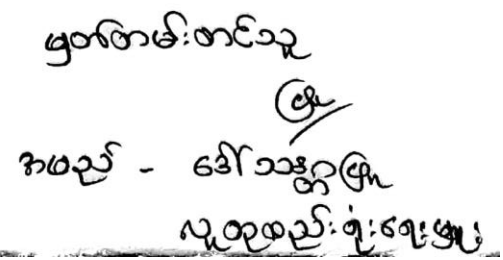 မှတ်တမ်းတင်သူ
ဖြူ
အမည် - ဒေါ်သန္တာဖြူ
လူထုစည်းရုံးရေးမှူး